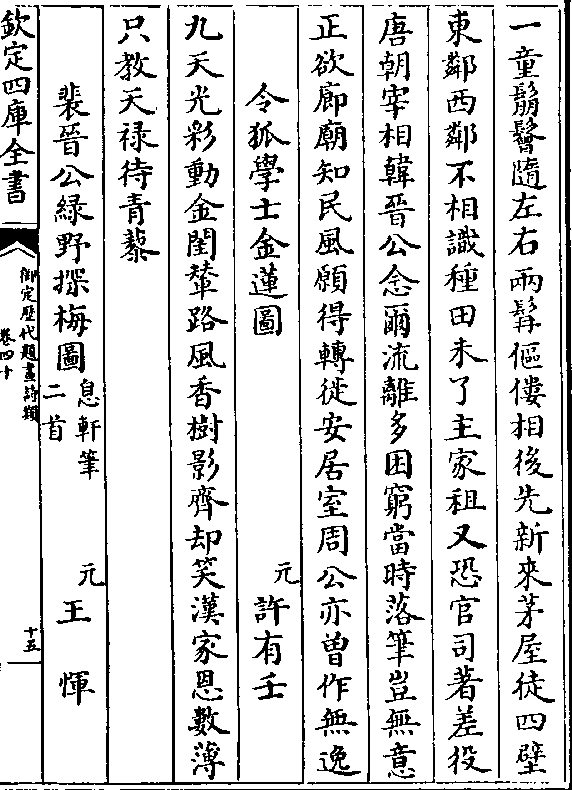 一童鬅鬙隨左右兩髯傴僂相後先新來茅屋徒四壁
東鄰西鄰不相識種田未了主家租又恐官司著差役
唐朝宰相韓晉公念爾流離多困窮當時落筆豈無意
正欲廊廟知民風願得轉徙安居室周公亦曽作無逸
令狐學士金蓮圖　元許有壬
九天光彩動金閨輦路風香樹影齊却笑漢家恩數薄
只教天禄待青藜
裴晉公緑野探梅圖息軒筆二首　元王惲
欽定四庫全書
御定歴代題畫詩類
卷四十
十五